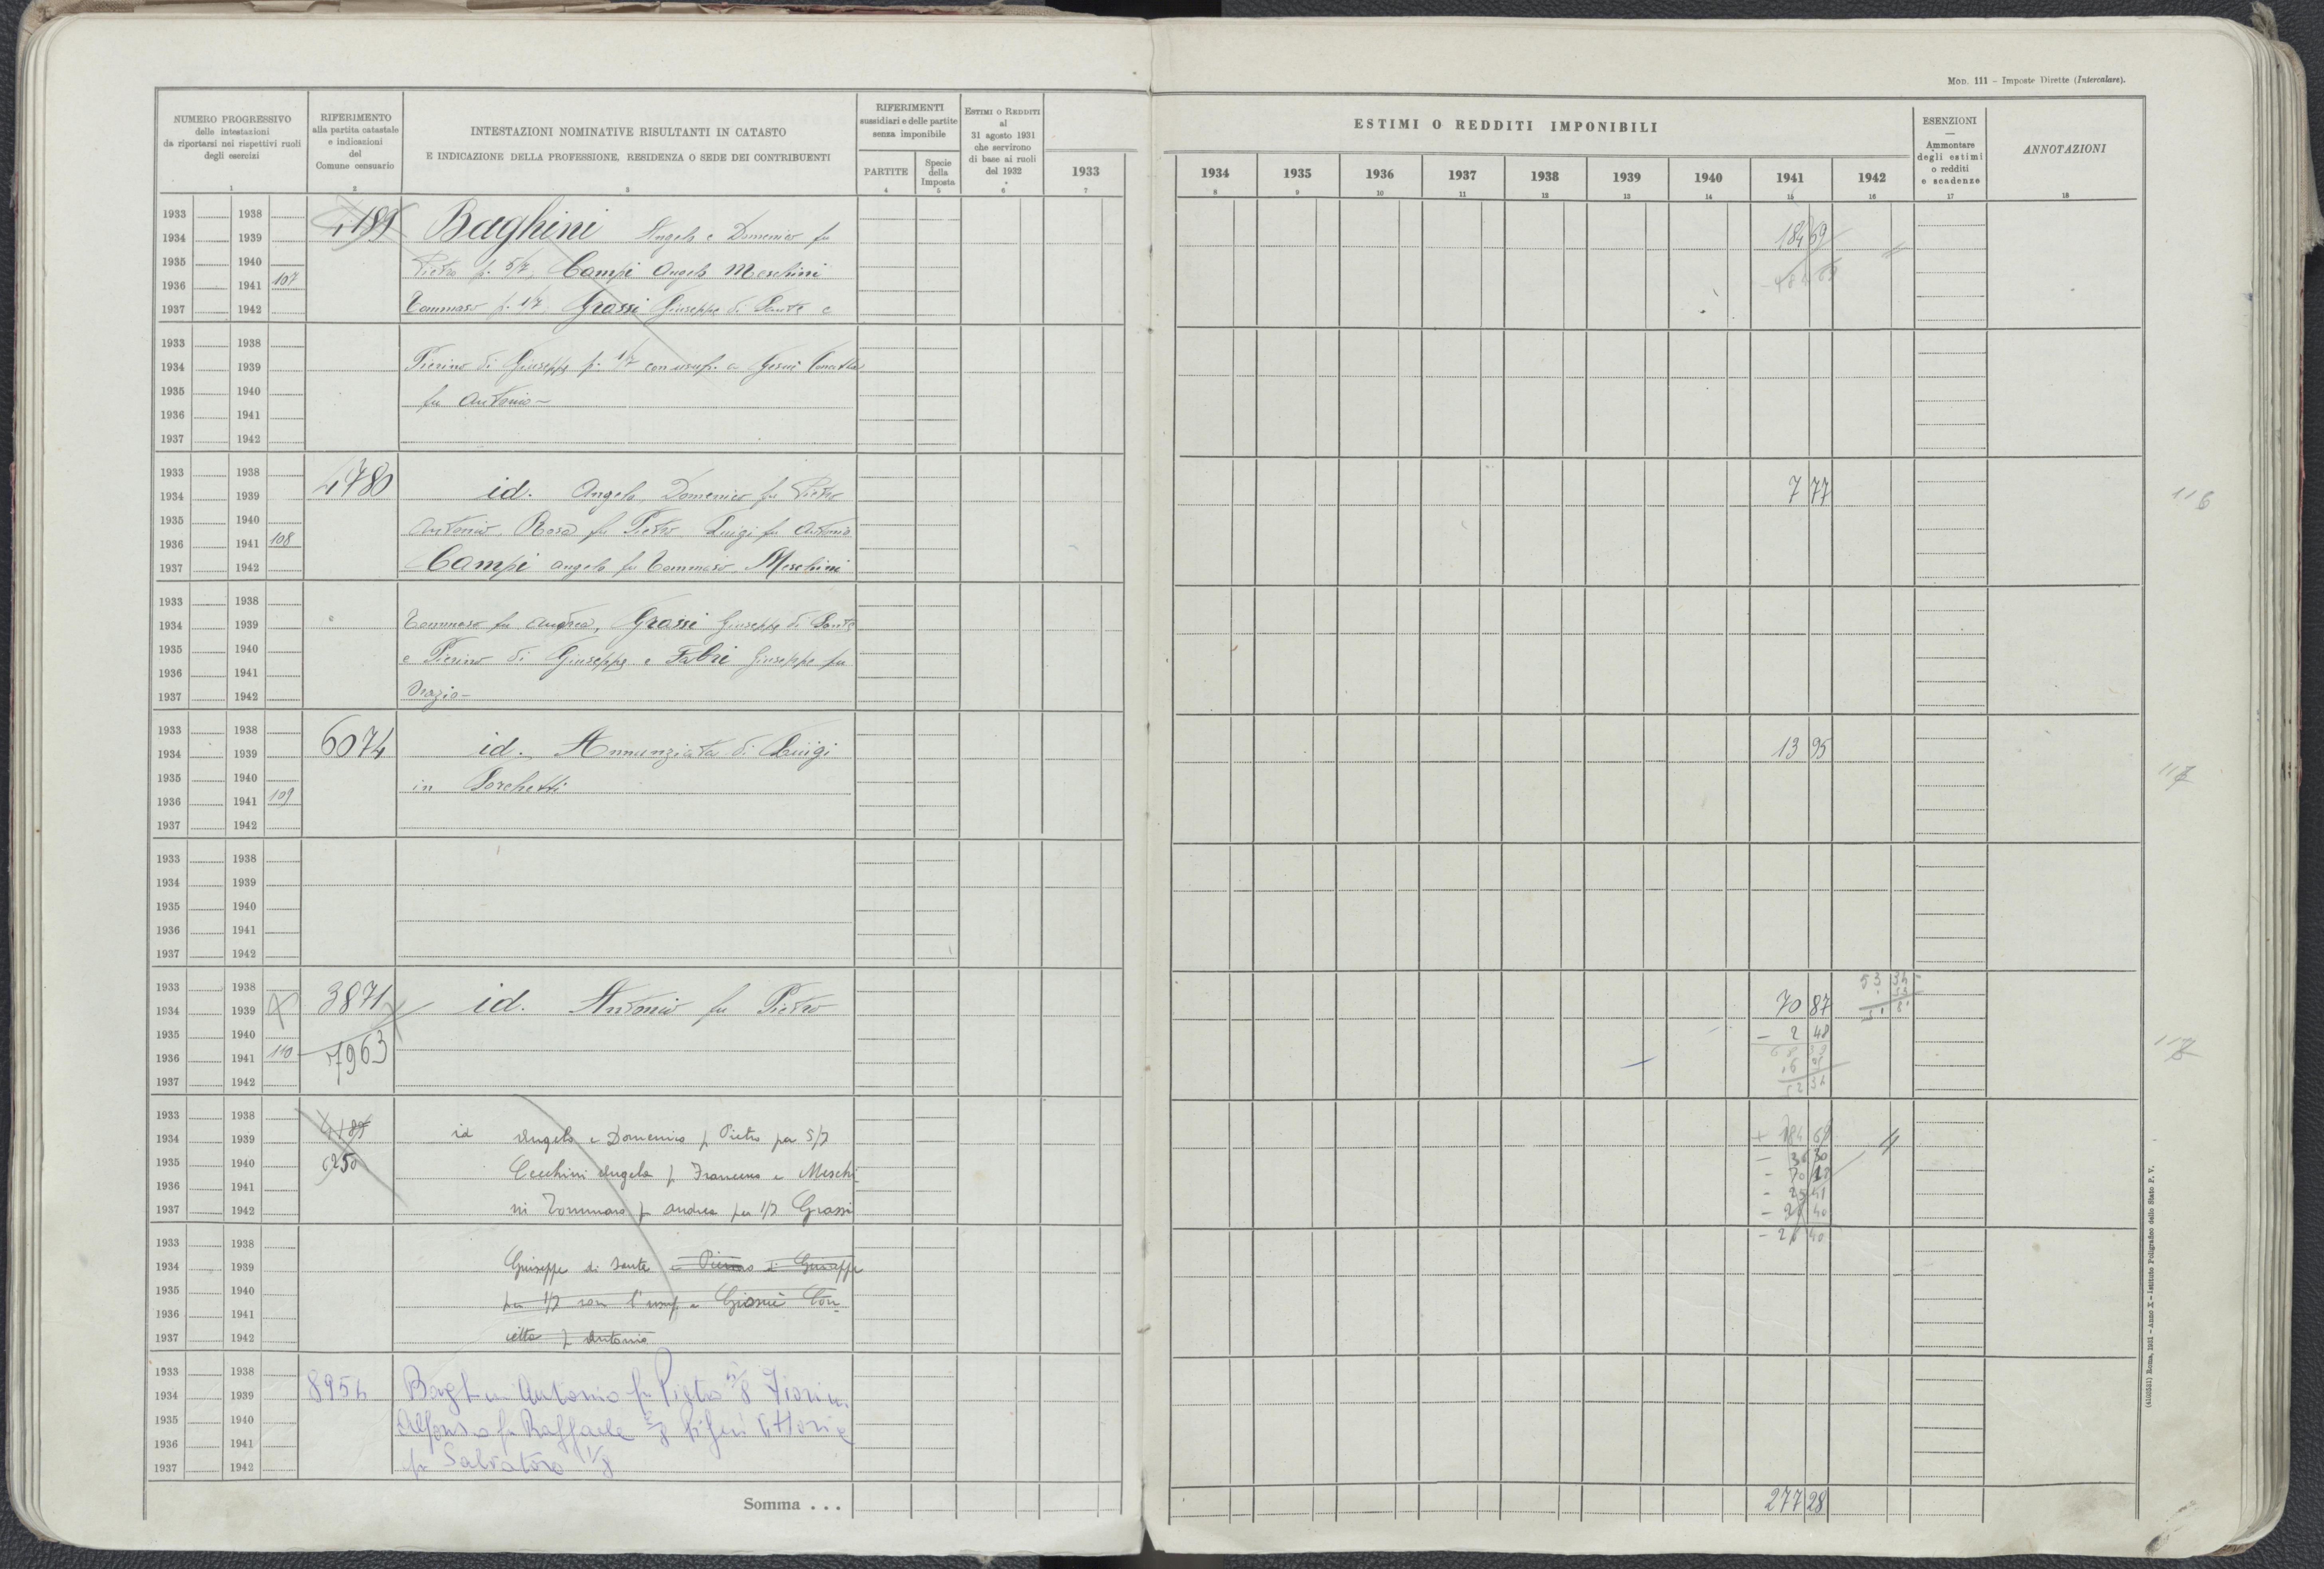 Mod. 111 – Imposte Dirette (Intercalare).
NUMERO PROGRESSIVO
delle intestazioni
da riportarsi nei rispettivi ruoli
degli esercizi
RIFERIMENTO
alla partita catastale
e indicazioni
del
Comune censuario
INTESTAZIONI NOMINATIVE RISULTANTI IN CATASTO
E INDICAZIONE DELLA PROFESSIONE, RESIDENZA O SEDE DEI CONTRIBUENTI
RIFERIMENTI
sussidiari e delle partite
senza imponibile
PARTITE
Specie
della
Imposta
ESTIMI O REDDITI
al
31 agosto 1931
che servirono
di base ai ruoli
del 1932
1933
ESTIMI O REDDITI IMPONIBILI
1934 1935 1936 1937 1938 1939 1940 1941 1942
ESENZIONI
—
Ammontare
degli estimi
o redditi
e scadenze
ANNOTAZIONI
1 2 3 4 5 6 7 8 9 10 11 12 13 14 15 16 17 18
1933 1938 4189 Baghini Angelo e Domenico fu 184 69
1934 1939
1935 1940 Pietro p. 5/7, Campi Angelo Meschini
1936 1941 107
1937 1942 Tommaso p. 1/7 Grassi Giuseppe di Sante e
1933 1938
1934 1939 Pierino di Giuseppe p. 1/7 con usuf. a Gesuè Concetta
1935 1940 fu Antonio –
1936 1941
1937 1942
1933 1938 4780
1934 1939 id. Angelo, Domenico fu Pietro 7 77 116
1935 1940 Antonio, Rosa fu Pietro, Luigi fu Antonio
1936 1941 108
1937 1942 Campi Angelo fu Tommaso, Meschini
1933 1938
1934 1939 Tommaso fu Andrea, Grassi Giuseppe di Sante
1935 1940 e Pierino di Giuseppe e Fabri Giuseppe fu
1936 1941
1937 1942 Orazio –
1933 1938 6074
1934 1939 id. Annunziata di Luigi 13 95
1935 1940 in Sorchetti
1936 1941 109
1937 1942
1933 1938
1934 1939
1935 1940
1936 1941
1937 1942
1933 1938 3871
1934 1939 id. Antonio fu Pietro 70 87
1935 1940 – 2 48
1936 1941 110 7963
1937 1942
1933 1938 4189
1934 1939 id Angelo e Domenico f Pietro per 5/7 + 184 69
1935 1940 6250 Cecchini Angelo f Francesco e Meschi-
1936 1941
1937 1942 ni Tommaso f Andrea per 1/7 Grassi
1933 1938
1934 1939 Giuseppe di Sante e Pierino di Giuseppe
1935 1940 per 1/7 con l'usuf. a Giosuè Con-
1936 1941
1937 1942 cetta f Antonio
1933 1938 8954 Antonio fu Pietro
1934 1939
1935 1940 Alfonso fu Raffaele
1936 1941
1937 1942 fu Salvatore 1/8
Somma . . . 277 28
(4100581) Roma, 1931 – Anno X – Istituto Poligrafico dello Stato P. V.